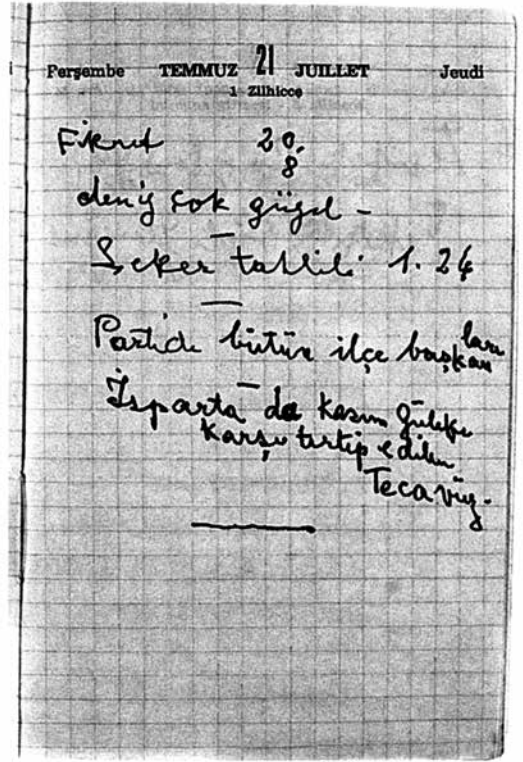 Perşembe TEMMUZ 21 JUILLET Jeudi
1 Zilhicce
Fikret 20.
8
deniz çok güzel -
Şeker tahlili 1.24
Partide bütün ilçe başkanları
Isparta da Kasım Güleke
karşı tertip edilen
Tecavüz.